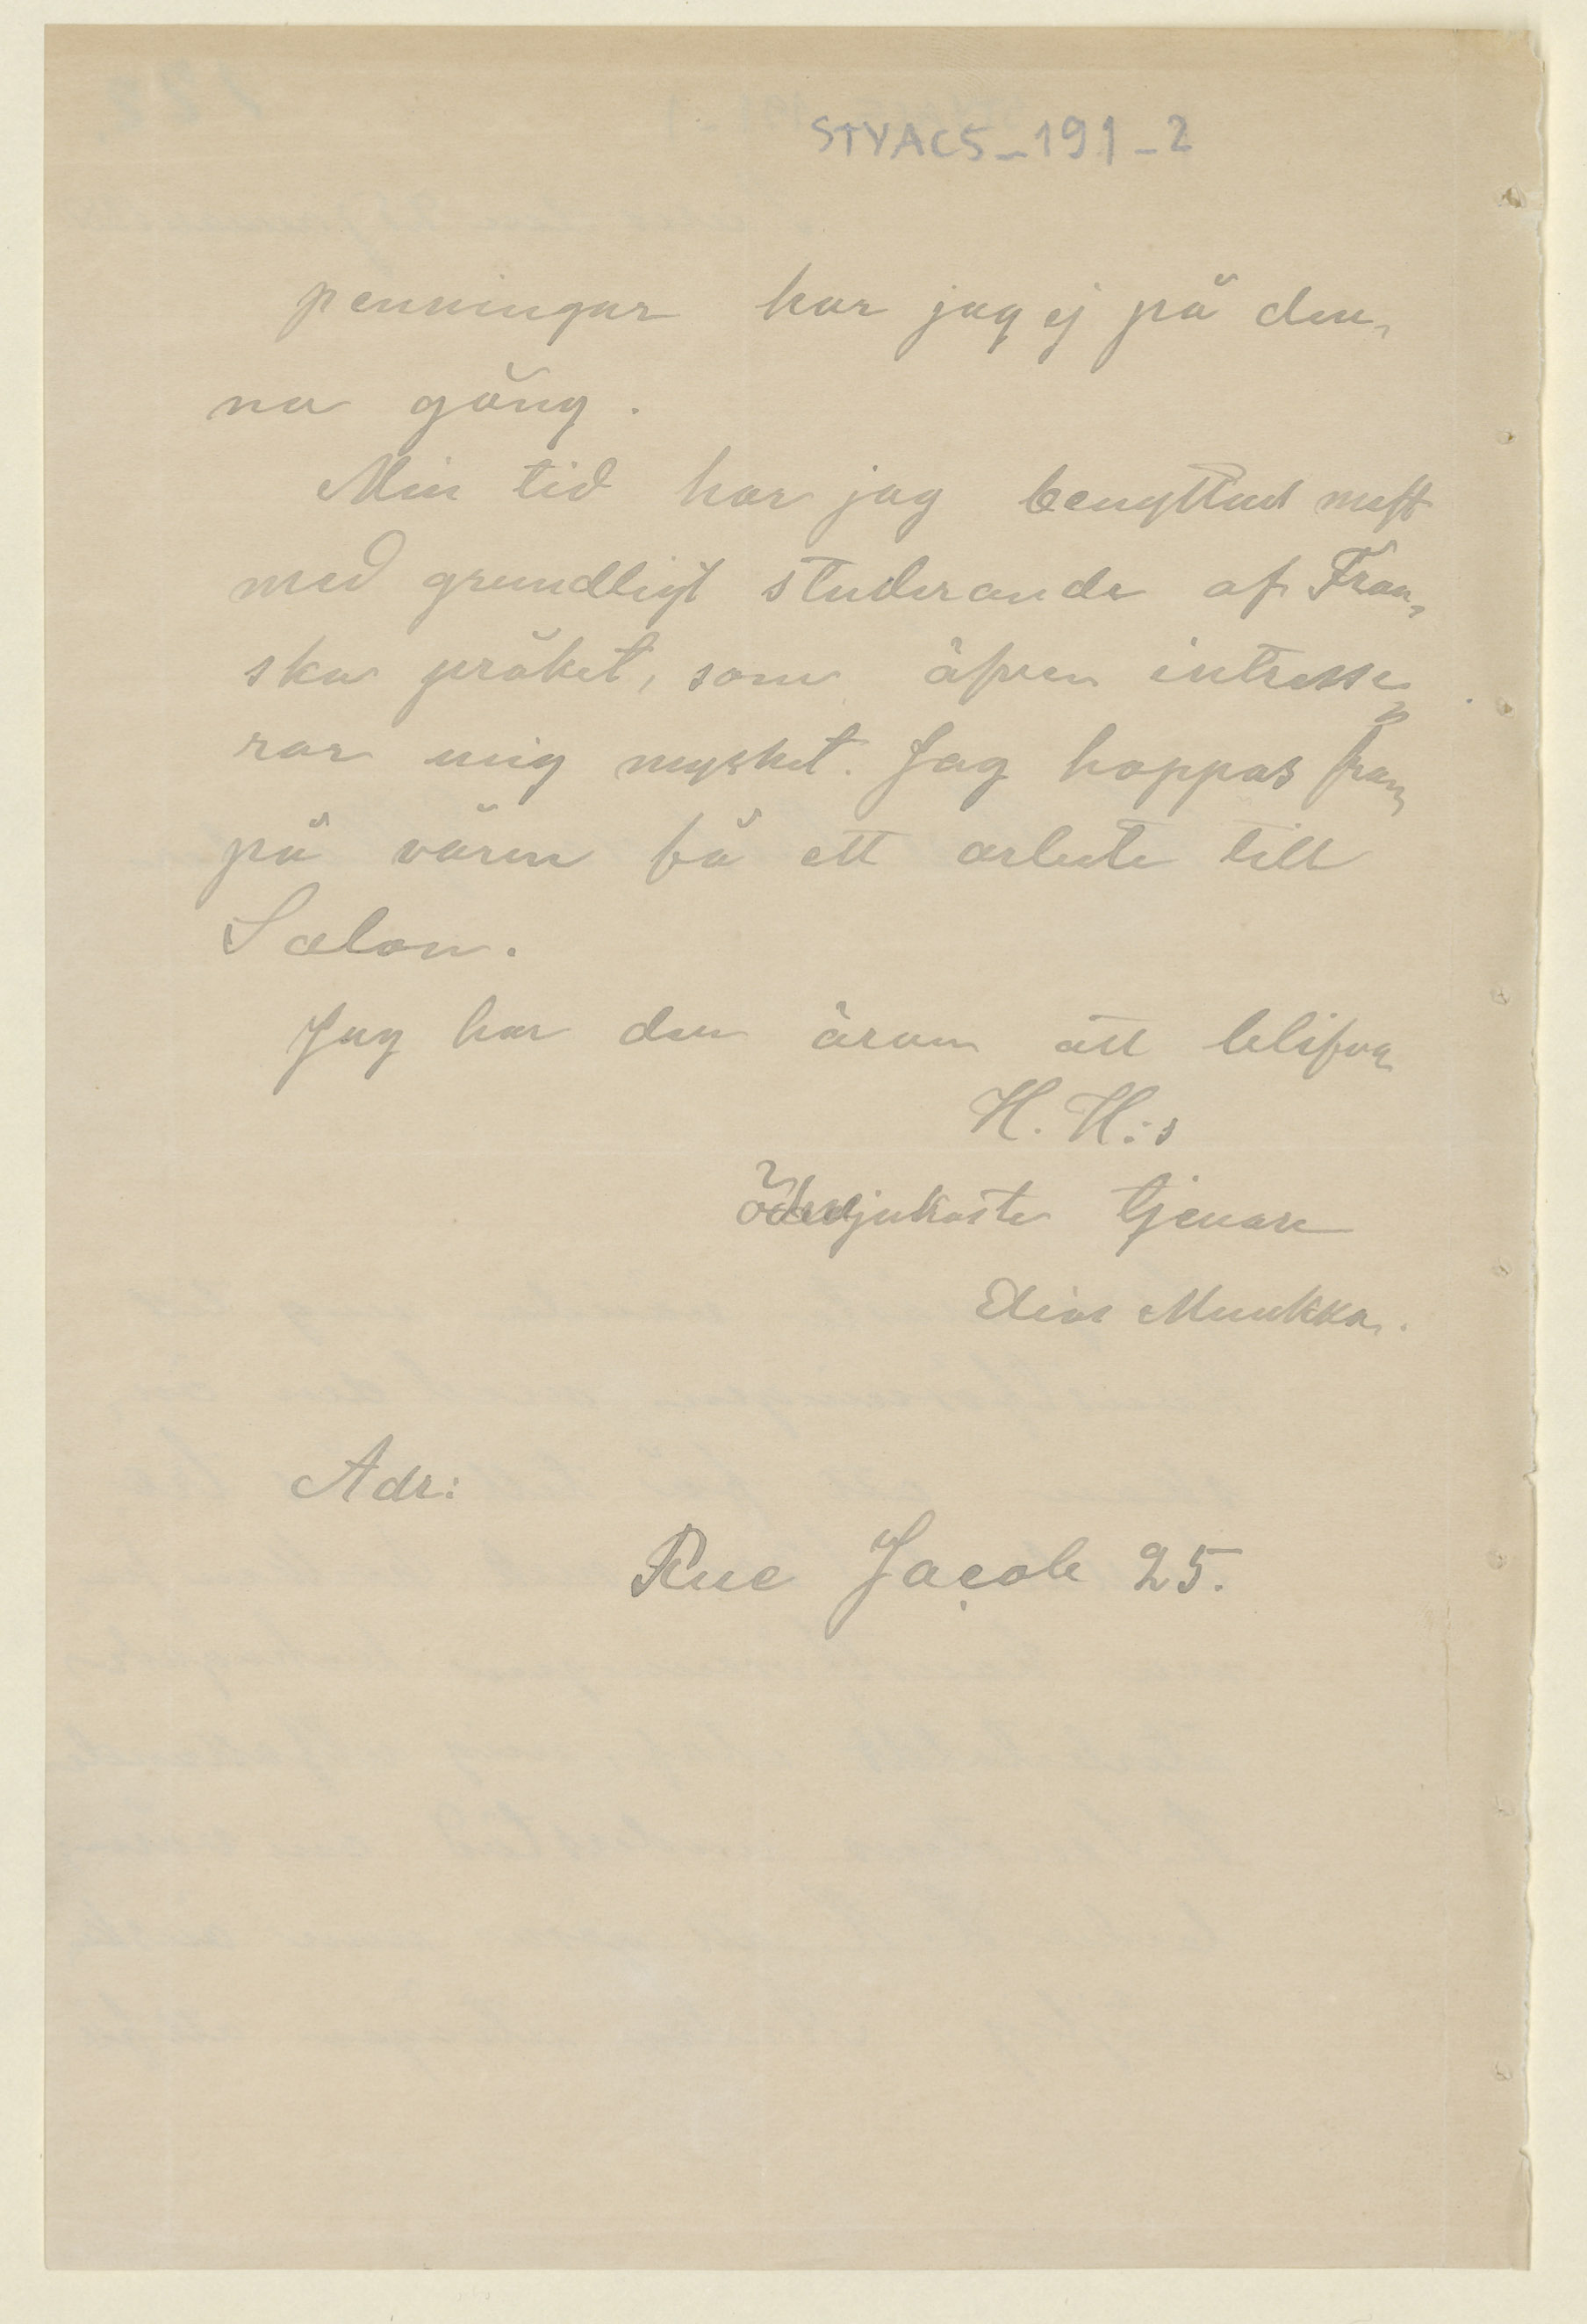 STYAC5_191_2
penningar har jag ej på den,
na gång.
Min tid har jag benyttad mest
med grundligt studerande af Fran,
ska språket, som äfven intresse,
rar mig mycket. Jag hoppas fram,
på våren få ett arbete till
Salon.
Jag har den äran att blifva
H. H:s
ödmjukaste tjenare
Elias Muukka.
Adr:
Rue Jacob 25.